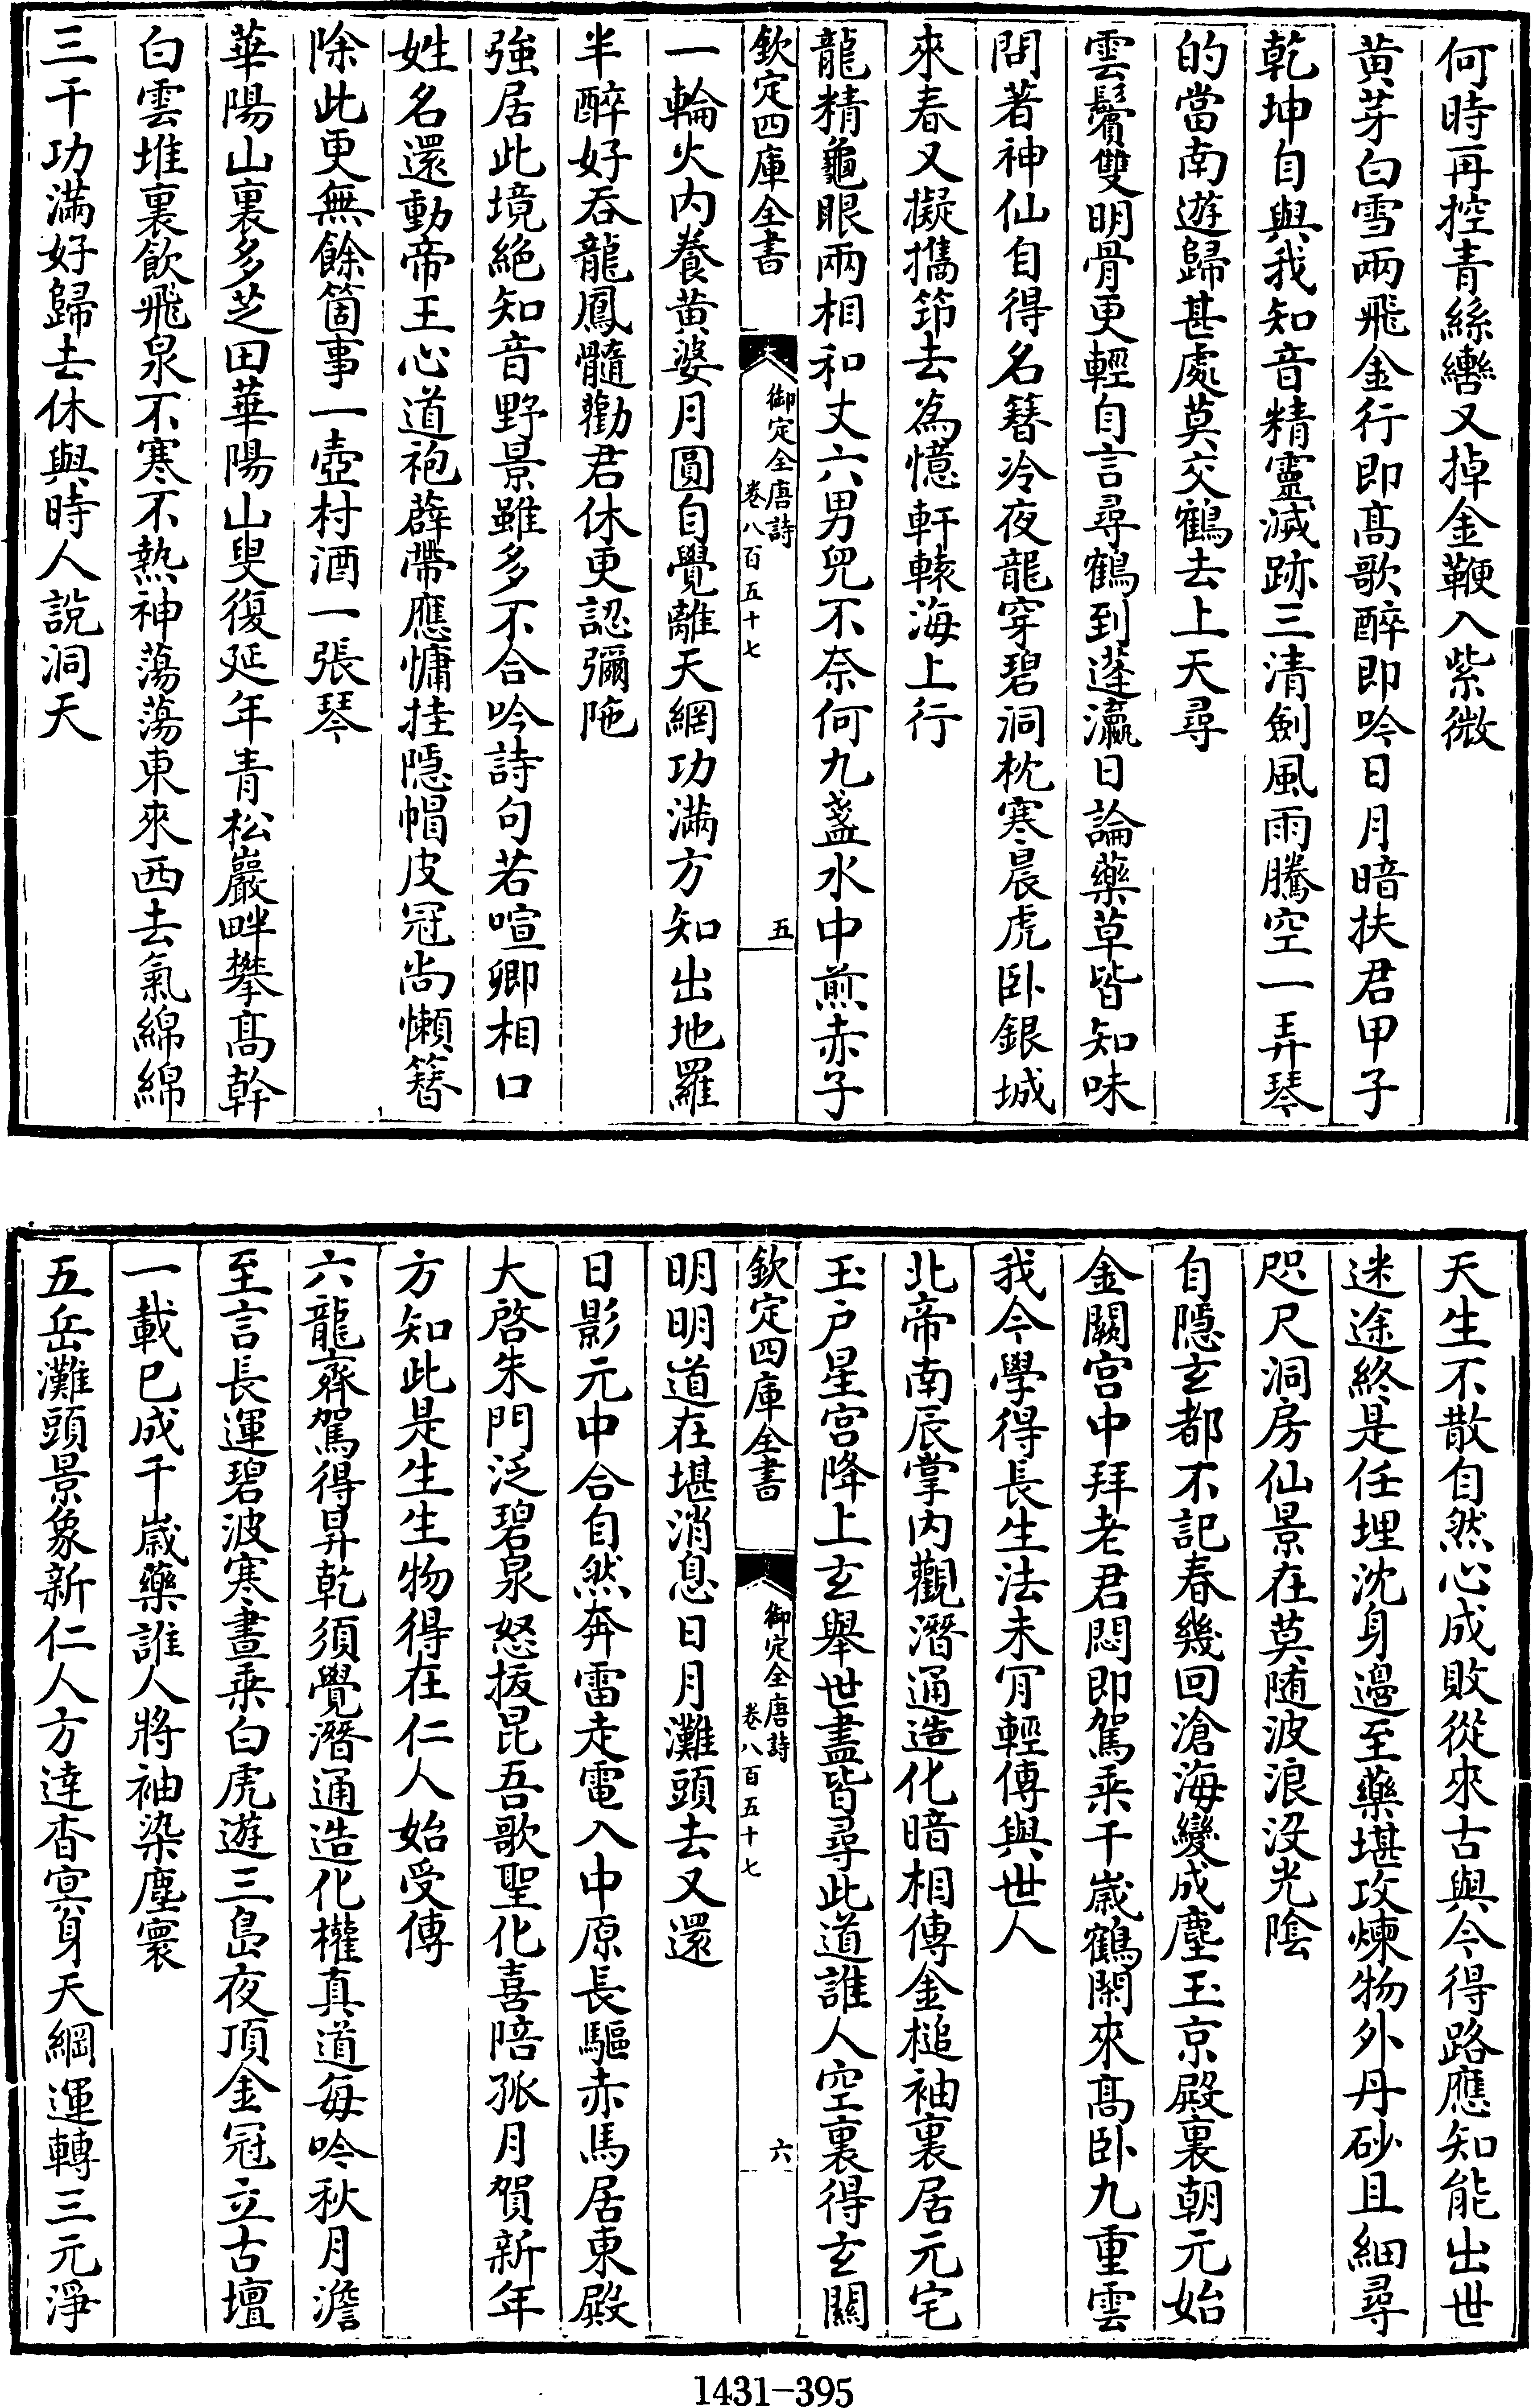 何時再控青絲轡又掉金鞭入紫微
黄芽白雪兩飛金行即髙歌醉即吟日月暗扶君甲子
乾坤自與我知音精靈滅跡三清劍風雨騰空一弄琴
的當南遊歸甚處莫交鶴去上天尋
雲鬢雙明骨更輕自言尋鶴到蓬瀛日論藥草皆知味
問著神仙自得名簪冷夜龍穿碧洞枕寒晨虎卧銀城
來春又擬攜筇去為憶軒轅海上行
龍精龜眼兩相和丈六男兒不奈何九盞水中煎赤子
欽定四庫全書
御定全唐詩
卷八百五十七
五
一輪火内養黄婆月圓自覺離天網功滿方知出地羅
半醉好吞龍鳳髓勸君休更認彌陁
強居此境絶知音野景雖多不合吟詩句若喧卿相口
姓名還動帝王心道袍薜帶應慵挂隠帽皮冠尚懶簪
除此更無餘箇事一壺村酒一張琴
華陽山裏多芝田華陽山叟復延年青松巖畔攀髙幹
白雲堆裏飲飛泉不寒不熱神蕩蕩東來西去氣綿綿
三千功滿好歸去休與時人說洞天
天生不散自然心成敗從來古與今得路應知能出世
迷途終是任埋沈身邊至藥堪攻煉物外丹砂且細尋
咫尺洞房仙景在莫随波浪没光陰
自隠玄都不記春幾回滄海變成塵玉京殿裏朝元始
金闕宫中拜老君悶即駕乘千嵗鶴閑來髙卧九重雲
我今學得長生法未肎輕傳與世人
北帝南辰掌内觀潛通造化暗相傳金槌袖裏居元宅
玉户星宫降上玄舉世盡皆尋此道誰人空裏得玄關
欽定四庫全書
御定全唐詩
卷八百五十七
六
明明道在堪消息日月灘頭去又還
日影元中合自然奔雷走電入中原長驅赤馬居東殿
大啓朱門泛碧泉怒拔昆吾歌聖化喜陪孤月賀新年
方知此是生生物得在仁人始受傳
六龍齊駕得昇乾須覺潛通造化權真道每吟秋月澹
至言長運碧波寒晝乘白虎遊三島夜頂金冠立古壇
一載已成千嵗藥誰人將袖染塵寰
五岳灘頭景象新仁人方達杳冥身天綱運轉三元淨
1431-395